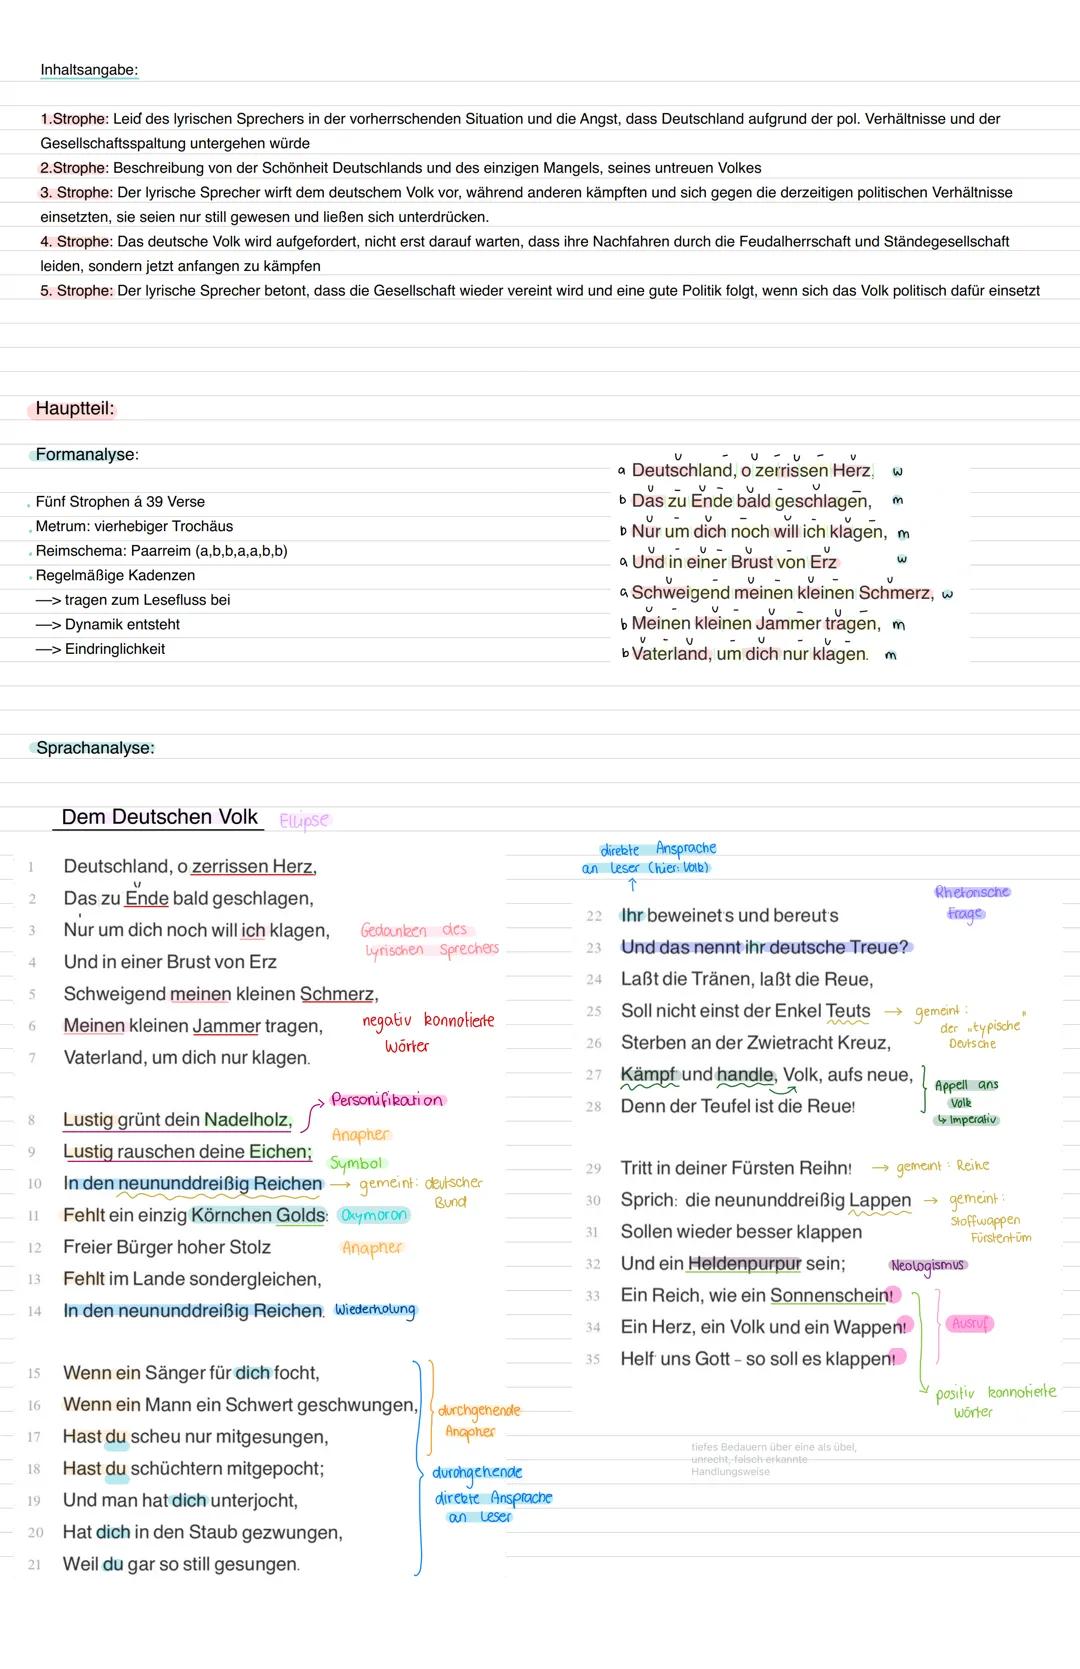 Inhaltsangabe:
1.Strophe: Leid des lyrischen Sprechers in der vorherrschenden Situation und die Angst, dass Deutschland aufgrund der pol. Verhältnisse und der
Gesellschaftsspaltung untergehen würde
2.Strophe: Beschreibung von der Schönheit Deutschlands und des einzigen Mangels, seines untreuen Volkes
3. Strophe: Der lyrische Sprecher wirft dem deutschem Volk vor, während anderen kämpften und sich gegen die derzeitigen politischen Verhältnisse
einsetzten, sie seien nur still gewesen und ließen sich unterdrücken.
4. Strophe: Das deutsche Volk wird aufgefordert, nicht erst darauf warten, dass ihre Nachfahren durch die Feudalherrschaft und Ständegesellschaft
leiden, sondern jetzt anfangen zu kämpfen
5. Strophe: Der lyrische Sprecher betont, dass die Gesellschaft wieder vereint wird und eine gute Politik folgt, wenn sich das Volk politisch dafür einsetzt
Hauptteil:
Formanalyse:
Fünf Strophen á 39 Verse
Metrum: vierhebiger Trochäus
Reimschema: Paarreim (a,b,b,a,a,b,b)
Regelmäßige Kadenzen
—> tragen zum Lesefluss bei
—> Dynamik entsteht
—> Eindringlichkeit
a Deutschland, o zerrissen Herz, w
b Das zu Ende bald geschlagen, m
b Nur um dich noch will ich klagen, m
a Und in einer Brust von Erz w
a Schweigend meinen kleinen Schmerz, w
b Meinen kleinen Jammer tragen, m
b Vaterland, um dich nur klagen. m
Sprachanalyse:
Dem Deutschen Volk Ellipse
1 Deutschland, o zerrissen Herz,
2 Das zu Ende bald geschlagen,
3 Nur um dich noch will ich klagen,
4 Und in einer Brust von Erz
5 Schweigend meinen kleinen Schmerz,
6 Meinen kleinen Jammer tragen,
7 Vaterland, um dich nur klagen.
Gedanken des
lyrischen Sprechers
negativ konnotierte
Wörter
8 Lustig grünt dein Nadelholz,
9 Lustig rauschen deine Eichen;
10 In den neununddreißig Reichen → gemeint: deutscher
Bund
11 Fehlt ein einzig Körnchen Golds: Oxymoron
12 Freier Bürger hoher Stolz Anapher
13 Fehlt im Lande sondergleichen,
14 In den neununddreißig Reichen. Wiederholung
Personifikation
Anapher
Symbol
15 Wenn ein Sänger für dich focht,
16 Wenn ein Mann ein Schwert geschwungen,
17 Hast du scheu nur mitgesungen,
18 Hast du schüchtern mitgepocht;
19 Und man hat dich unterjocht,
20 Hat dich in den Staub gezwungen,
21 Weil du gar so still gesungen.
durchgehende
Anapher
durchgehende
direkte Ansprache
an Leser
direkte Ansprache
an Leser (hier: Volk)
22 Ihr beweinet's und bereut's
Rhetorische
Frage
23 Und das nennt ihr deutsche Treue?
24 Laßt die Tränen, laßt die Reue,
25 Soll nicht einst der Enkel Teuts → gemeint:
der "typische"
Deutsche
26 Sterben an der Zwietracht Kreuz,
27 Kämpf und handle, Volk, aufs neue,
28 Denn der Teufel ist die Reue!
Appell ans
Volk
↳ Imperativ
29 Tritt in deiner Fürsten Reihn! → gemeint: Reihe
30 Sprich: die neununddreißig Lappen → gemeint:
Stoffwappen
Fürstentüm
31 Sollen wieder besser klappen
32 Und ein Heldenpurpur sein; Neologismus
33 Ein Reich, wie ein Sonnenschein!
34 Ein Herz, ein Volk und ein Wappen! Ausruf
35 Helf' uns Gott – so soll es klappen!
positiv konnotierte
Wörter
tiefes Bedauern über eine als übel,
unrecht, falsch erkannte
Handlungsweise